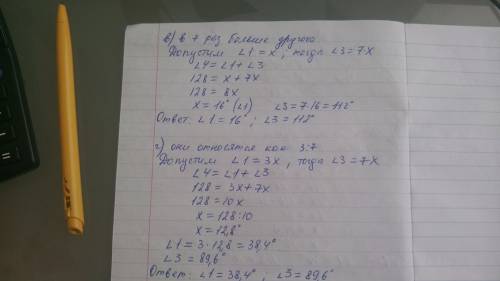 в) в 7 раз больше другого
Допустим ∠1 = x, тогда ∠3 = 7x
∠4 = ∠1 + ∠3
128 = x + 7x
128 = 8x
x = 16° (∠1) ∠3 = 7·16 = 112°
Ответ: ∠1 = 16° ; ∠3 = 112°
г) они относятся как 3:7
Допустим ∠1 = 3x, тогда ∠3 = 7x
∠4 = ∠1 + ∠3
128 = 3x + 7x
128 = 10x
x = 128:10
x = 12,8°
∠1 = 3·12,8 = 38,4°
∠3 = 89,6°
Ответ: ∠1 = 38,4° ; ∠3 = 89,6°